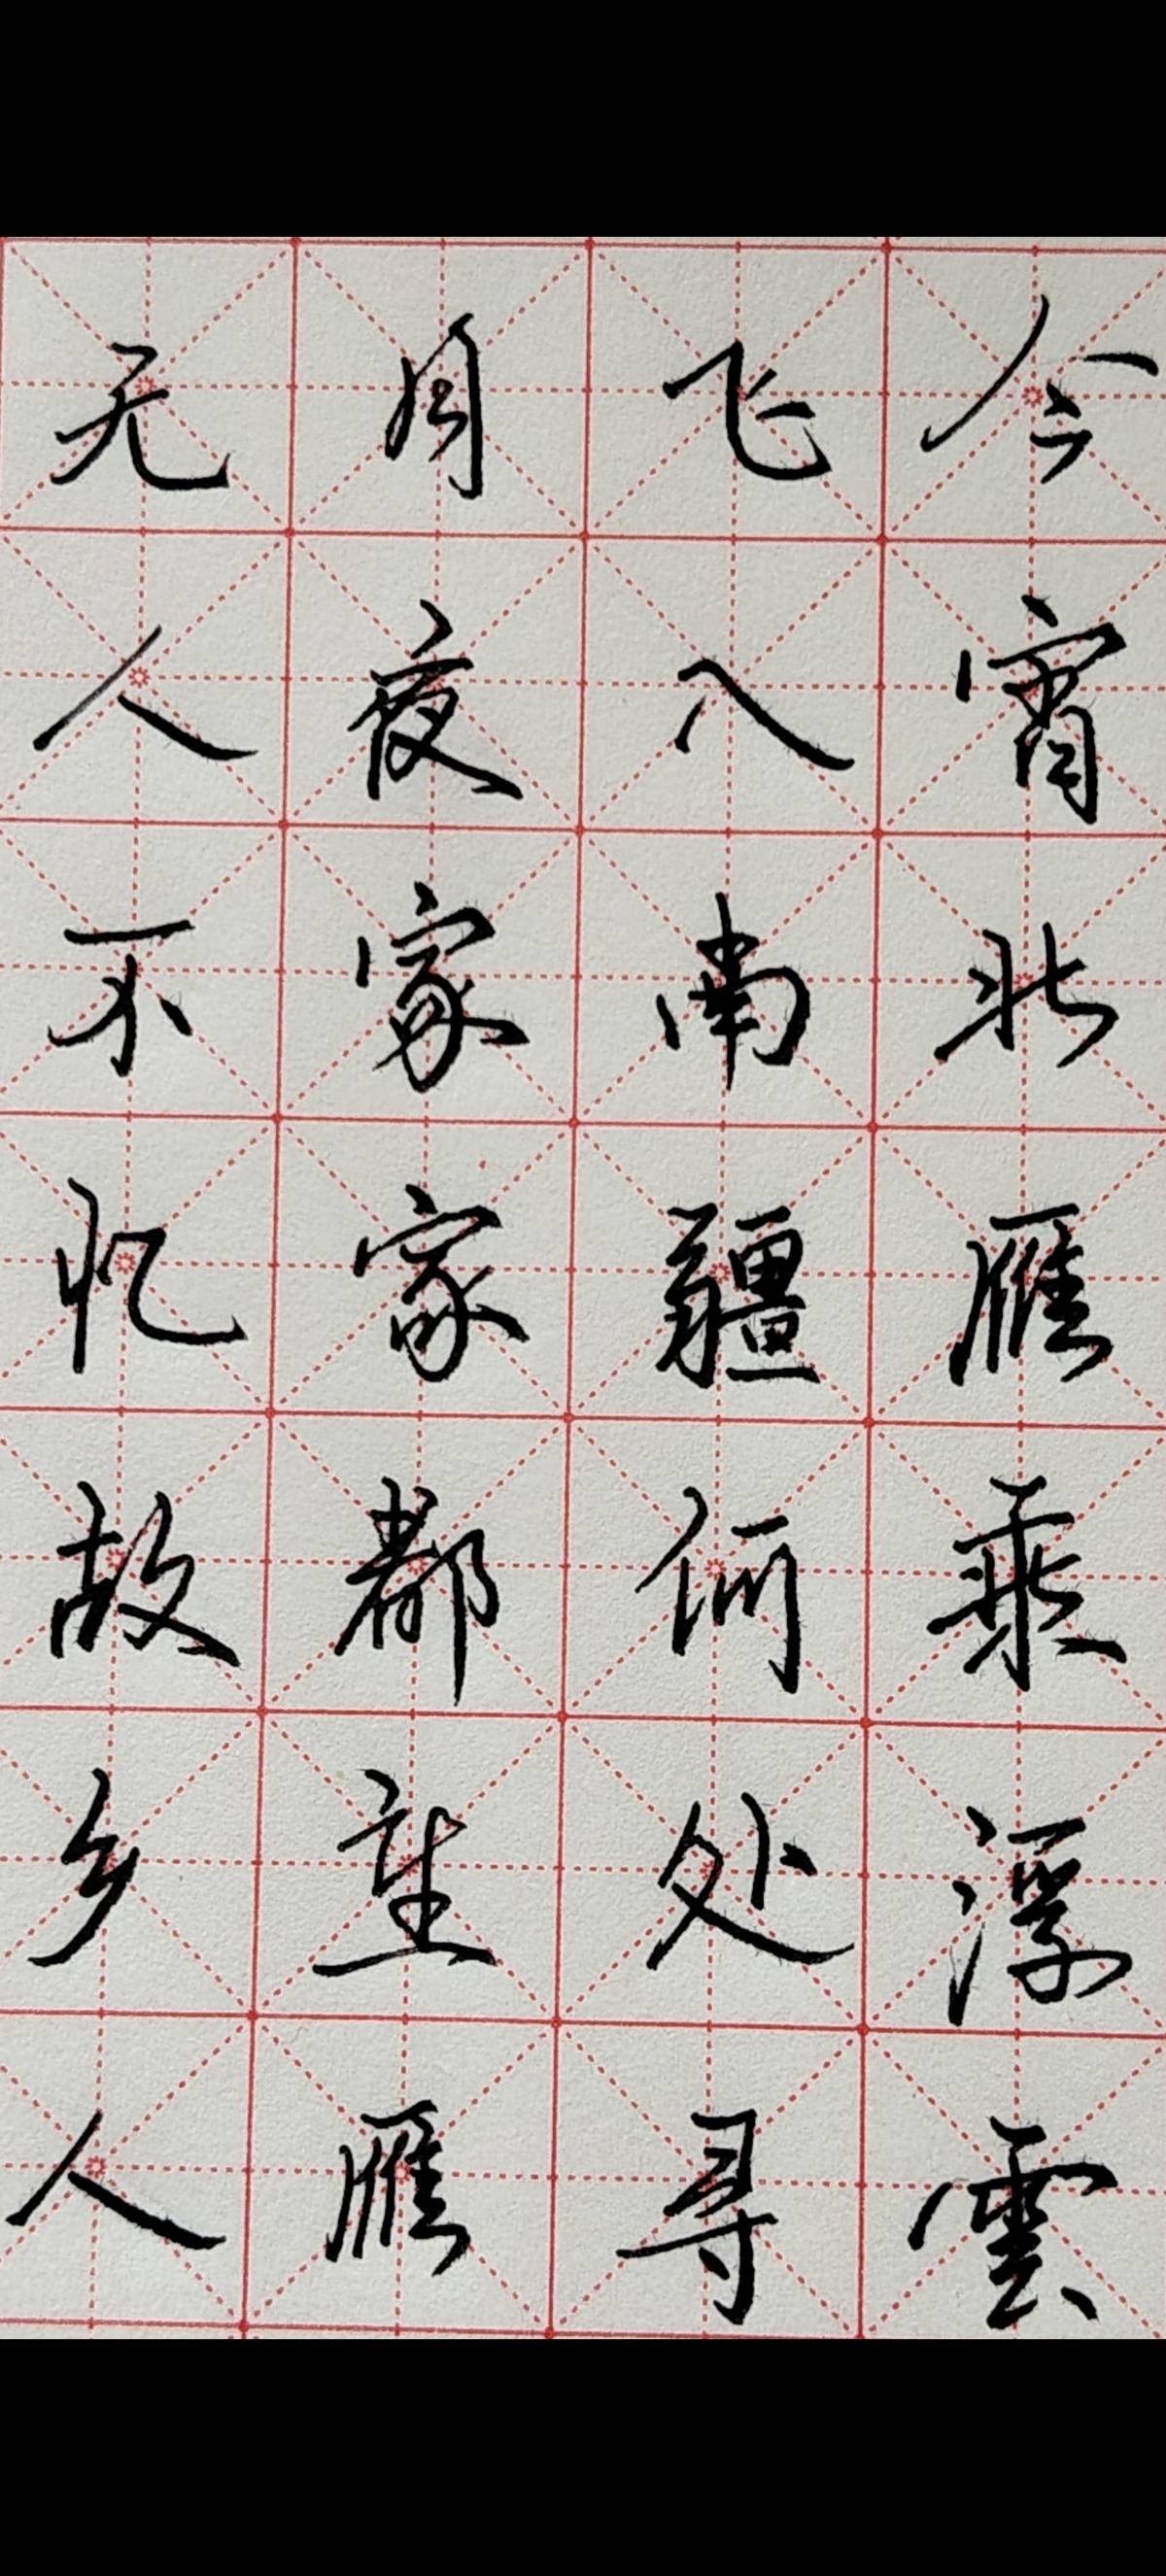 今宵北雁乘浮雲
飞入南疆何处寻
月夜家家都望雁
无人不忆故乡人